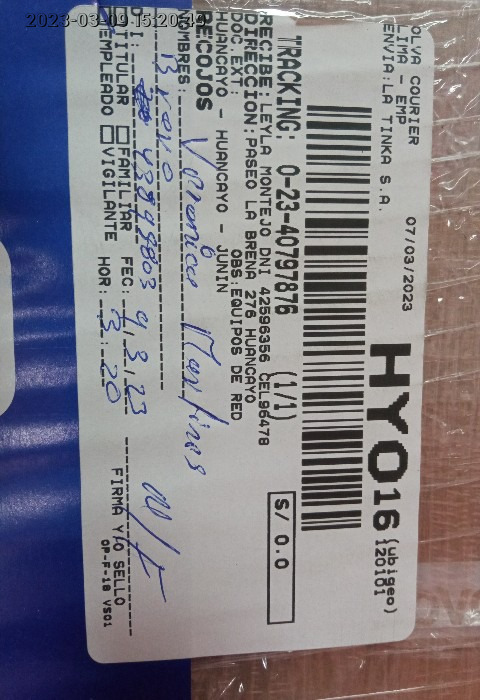 2023-03-09 15:20:49
OLVA COURIER 07/03/2023
LIMA - EMP
ENVIA:LA TINKA S.A.
HYO16 (ubigeo)
120101
TRACKING: 0-23-40797876 (1/1)
S/ 0.0
RECIBE:LEYLA MONTEJO DNI 42596356 CEL96478
DIRECCION:PASEO LA BRENA 276 HUANCAYO
DOC.EXT: OBS:EQUIPOS DE RED
HUANCAYO - HUANCAYO - JUNIN
RECOJOS
NOMBRES: Veronica Martinez
Bravo
DNI: 43849803 FEC: 9/3/23
TITULAR FAMILIAR HOR: 3:20
EMPLEADO VIGILANTE
FIRMA Y/O SELLO
OP-F-18 VS01